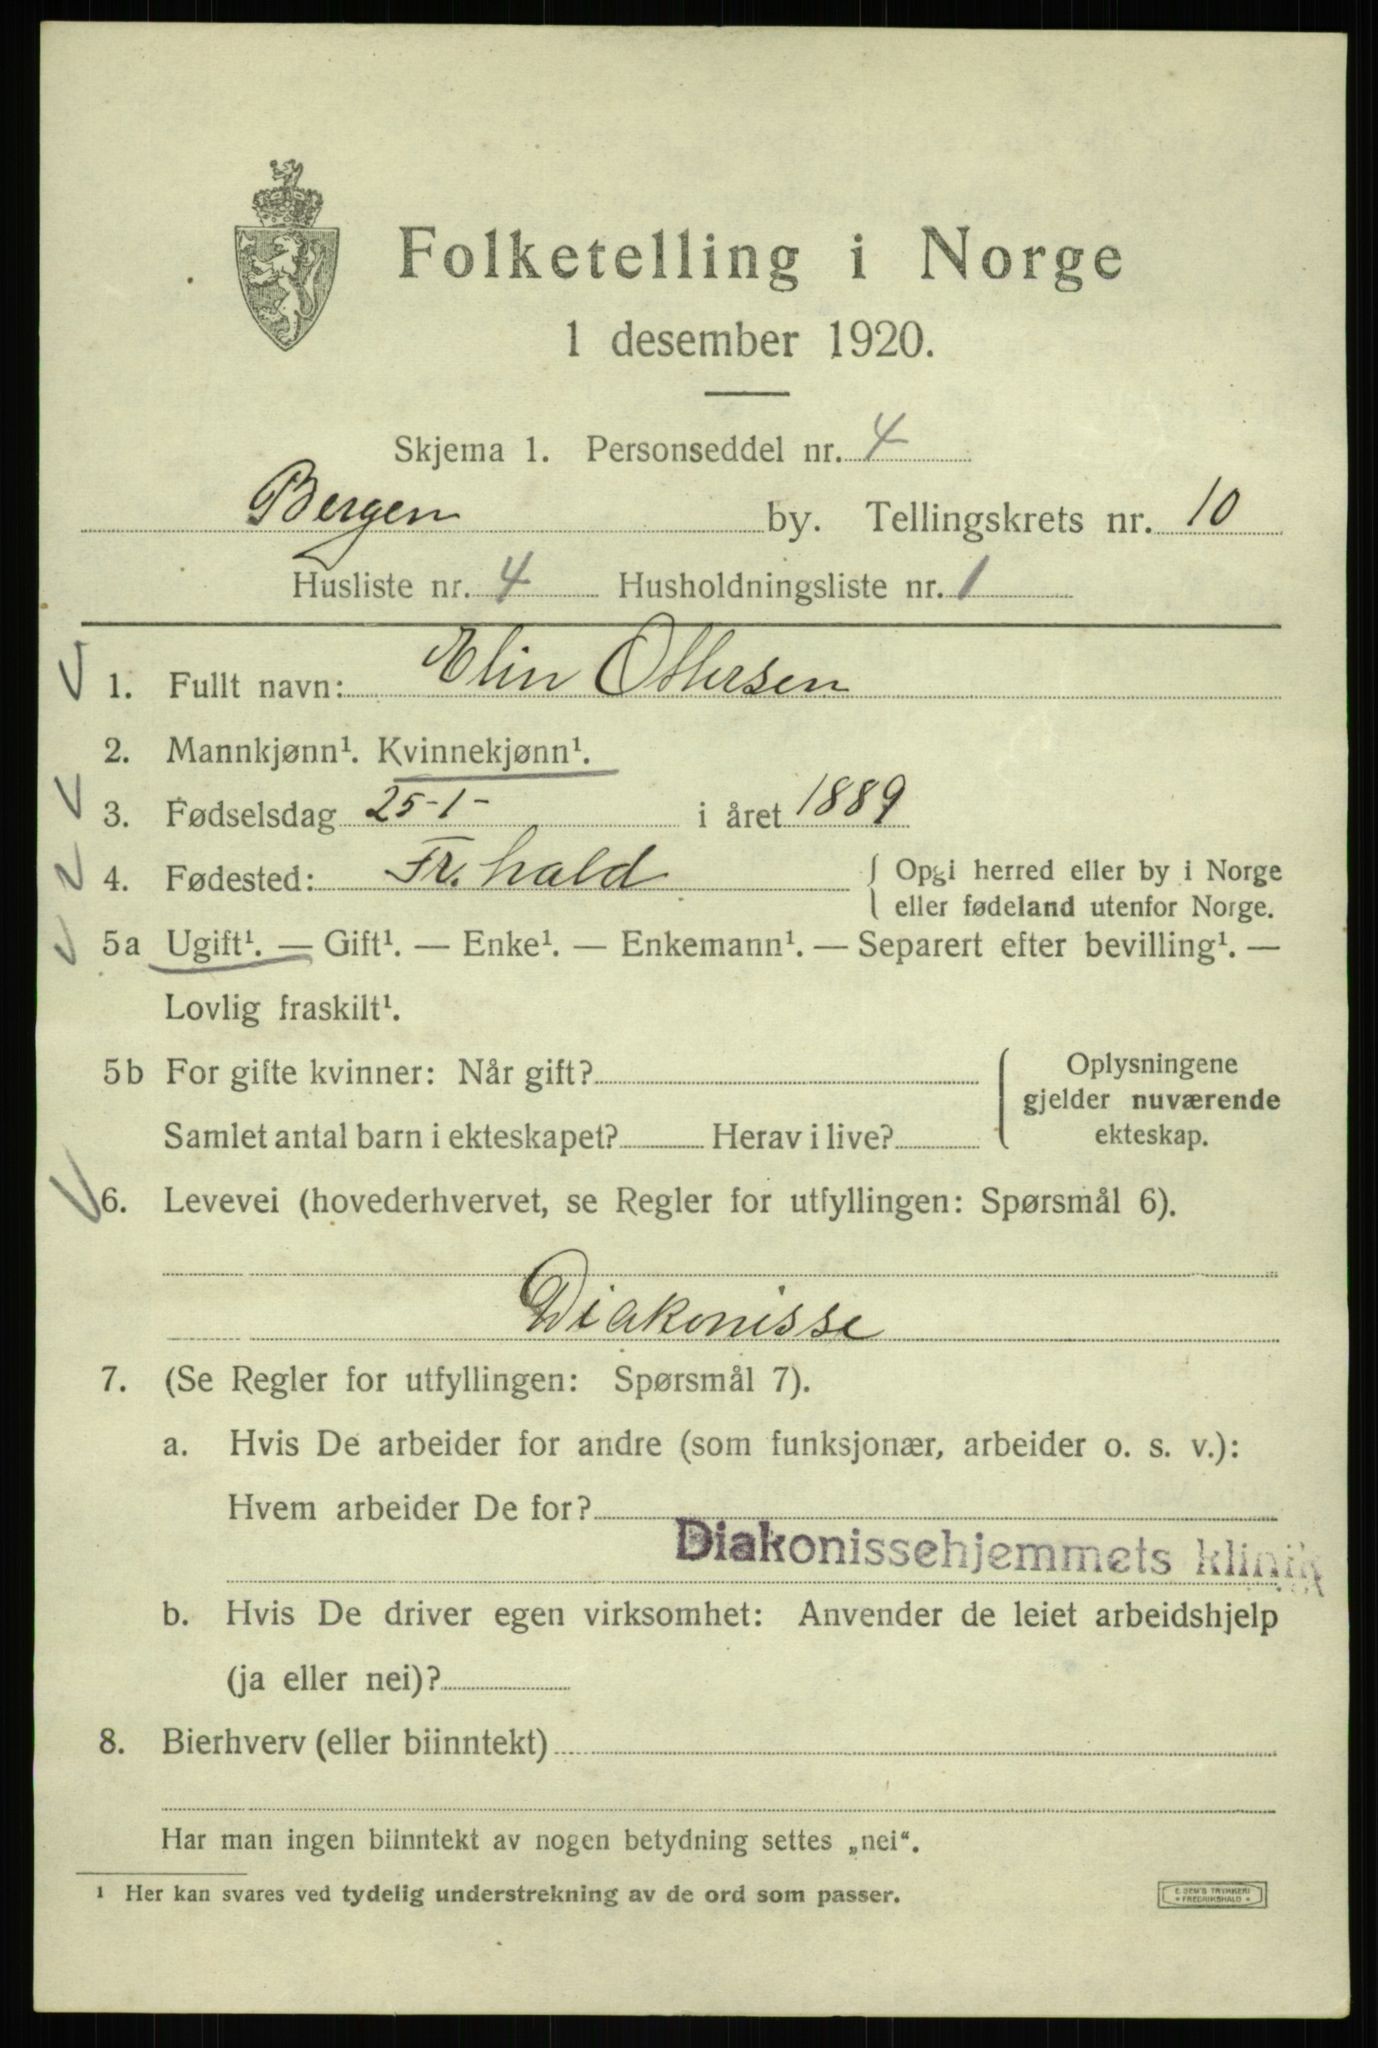 Folketelling i Norge
1 desember 1920.
Skjema 1. Personseddel nr. 4
Bergen by. Tellingskrets nr. 10
Husliste nr. 4 Husholdningsliste nr. 1
1. Fullt navn: Elin Ottersen
2. Mannkjønn¹. Kvinnekjønn¹.
3. Fødselsdag 25-1- i året 1889
4. Fødested: Fr.hald { Opgi herred eller by i Norge
eller fødeland utenfor Norge.
5a Ugift¹. — Gift¹. — Enke¹. — Enkemann¹. — Separert efter bevilling¹. —
Lovlig fraskilt¹.
5b For gifte kvinner: Når gift? { Oplysningene
gjelder nuværende
Samlet antal barn i ekteskapet? Herav i live? ekteskap.
6. Levevei (hovederhvervet, se Regler for utfyllingen: Spørsmål 6).
Diakonisse
7. (Se Regler for utfyllingen: Spørsmål 7).
a. Hvis De arbeider for andre (som funksjonær, arbeider o. s. v.):
Hvem arbeider De for?
Diakonissehjemmets klinik
b. Hvis De driver egen virksomhet: Anvender de leiet arbeidshjelp
(ja eller nei)?
8. Bierhverv (eller biinntekt)
Har man ingen biinntekt av nogen betydning settes „nei“.
¹ Her kan svares ved tydelig understrekning av de ord som passer.
E. SEM'S TRYKKERI
* FREDRIKSHALD *